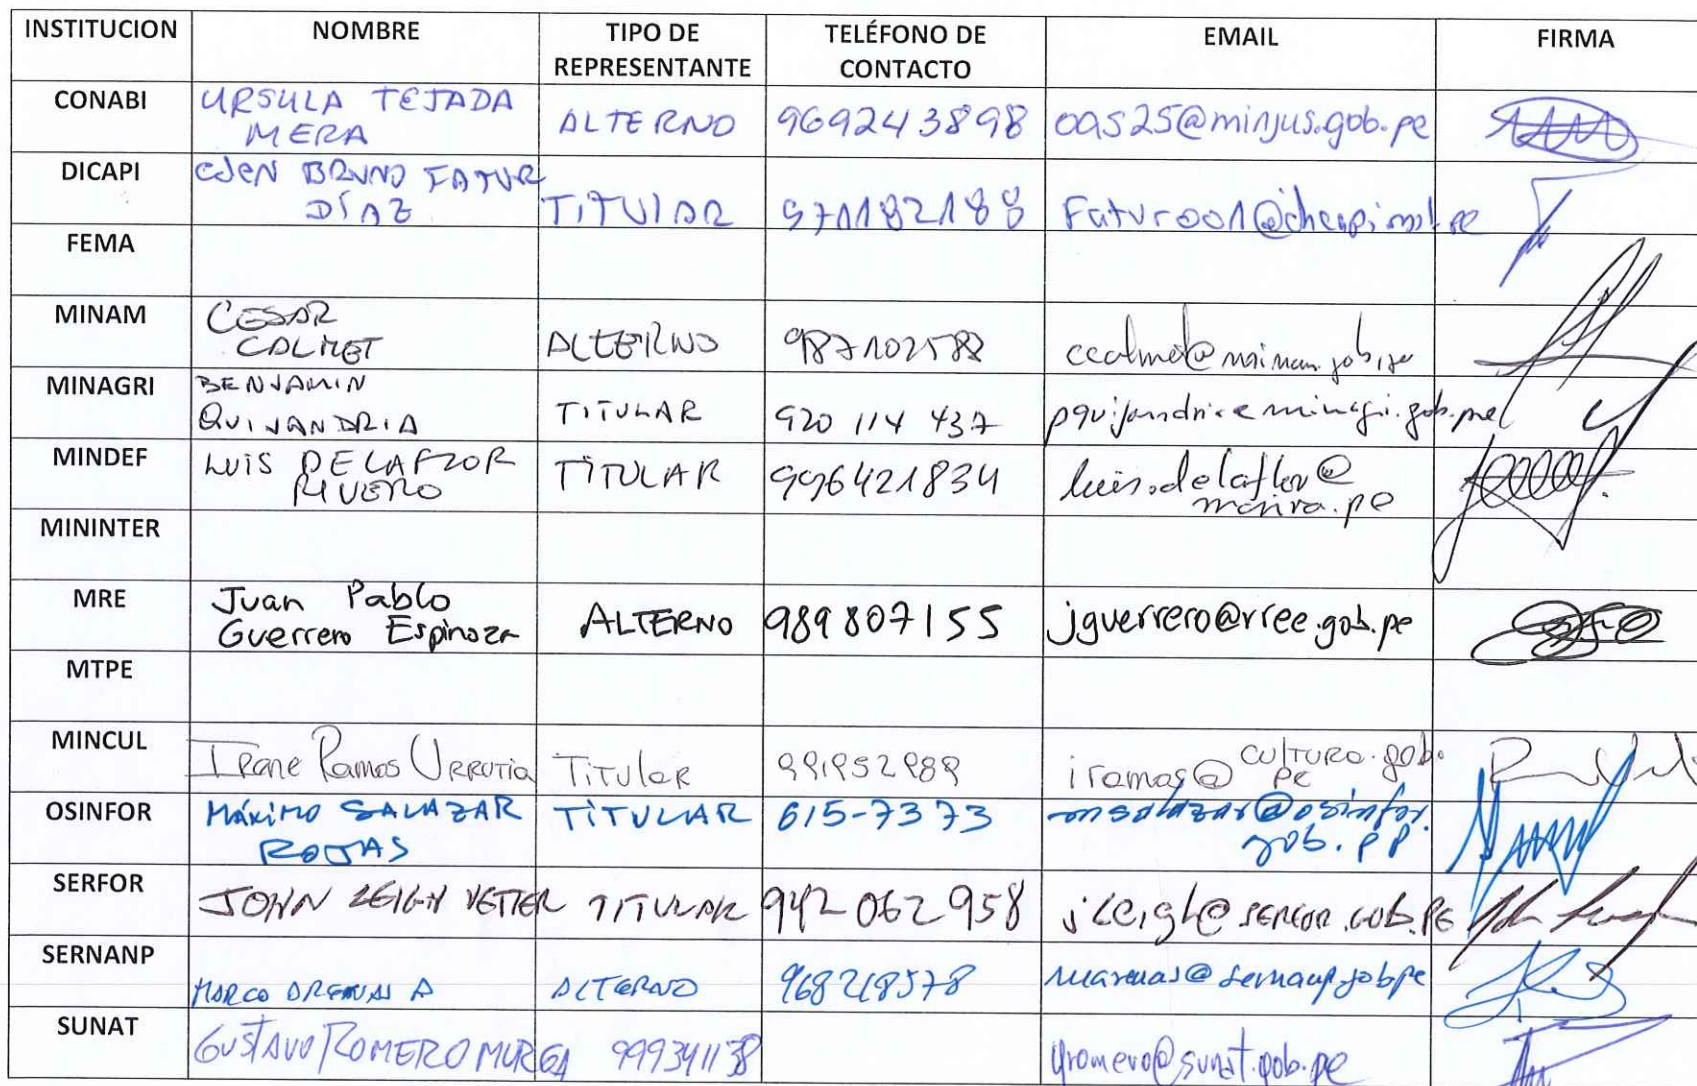 INSTITUCION NOMBRE TIPO DE REPRESENTANTE TELÉFONO DE CONTACTO EMAIL FIRMA
CONABI URSULA TEJADA MERA ALTERNO 969243898 oas25@minjus.gob.pe
DICAPI BRUNO FATUR DÍAZ TITULAR 971182188
FEMA
MINAM CESAR CALMET ALTERNO 987102588
MINAGRI BENJAMIN QUIJANDRIA TITULAR 920 114 437
MINDEF LUIS DELAFLOR RIVERO TITULAR 996421834 luis.delaflor@marina.pe
MININTER
MRE Juan Pablo Guerrero Espinoza ALTERNO 989807155 jguerrero@rree.gob.pe
MTPE
MINCUL Irene Ramos Urrutia Titular iramos@cultura.gob.pe
OSINFOR MÁXIMO SALAZAR ROJAS TITULAR 615-7373 msalazar@osinfor.gob.pe
SERFOR JOHN LEIGH VETTER TITULAR 942 062 958 jleigh@SERFOR.GOB.PE
SERNANP MARCO ARENAS A ALTERNO 968218578 marenas@sernanp.gob.pe
SUNAT GUSTAVO ROMERO MURGA 999341138 gromero@sunat.gob.pe